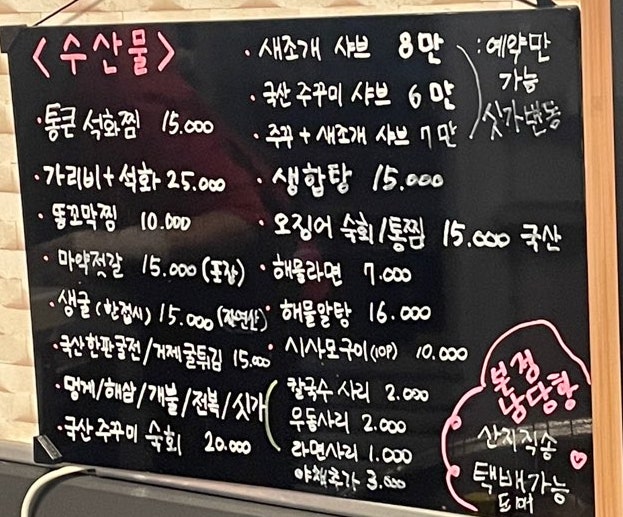 <수산물>
·통큰 석화찜 15.000
·가리비+석화 25.000
·똥꼬막찜 10.000
·마약젓갈 15.000 (포장)
·생굴 (한접시) 15.000 (자연산)
·국산한판굴전/거제굴튀김 15.000
·멍게/해삼/개불/전복/싯가
·국산 주꾸미 숙회 20.000
·새조개 샤브 8만
·국산 주꾸미 샤브 6만
·주꾸+새조개 샤브 7만
:예약만
가능
싯가변동
·생합탕 15.000
·오징어 숙회/통찜 15.000 국산
·해물라면 7.000
·해물알탕 16.000
·시사모구이(10P) 10.000
칼국수 사리 2.000
우동사리 2.000
라면사리 1.000
야채추가 3.000
본점
남당항
산지직송
택배가능
도매